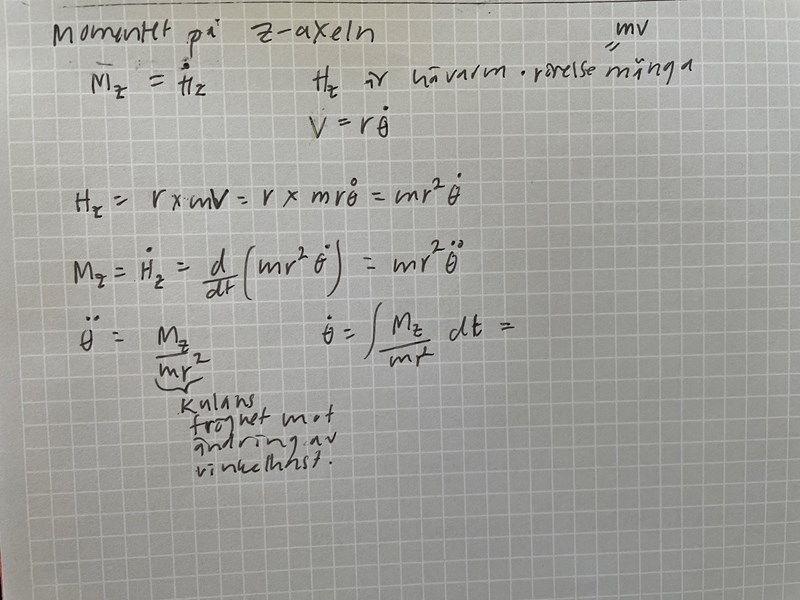 Momentet på z-axeln
mv
M̄_z = Ḣ_z    H_z är hävarm · rörelse mänga
V = rθ̇
H_z = r × mV = r × mrθ̇ = mr²θ̇
M_z = Ḣ_z = d/dt (mr²θ̇) = mr²θ̈
θ̈ = M_z/mr²    θ̇ = ∫ M_z/mr² dt =
Kulans
tröghet mot
ändring av
vinkelhast.